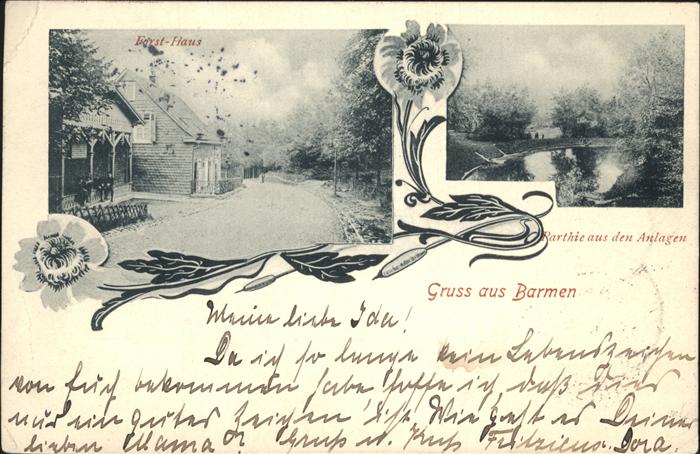 Forst-Haus
Parthie aus den Anlagen
Gruss aus Barmen
Meine liebe Ida!
Da ich so lange kein Lebenszeichen
von Euch bekommen habe hoffe ich, daß dies
nur ein gutes Zeichen ist. Wie geht es Deiner
lieben Mama? Gruß u. Kuß Dora.